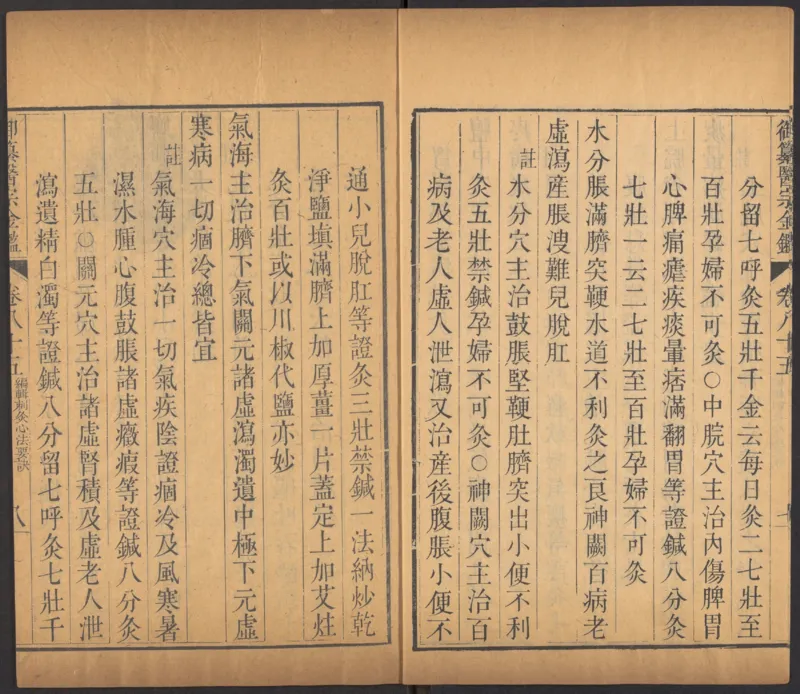 御纂醫宗金鑑
卷八十五
分留七呼灸五壯千金云每日灸二七壯至
百壯孕婦不可灸○中脘穴主治內傷脾胃
心脾痛瘧疾痰暈痞滿翻胃等證鍼八分灸
七壯一云二七壯至百壯孕婦不可灸
水分脹滿臍突鞕水道不利灸之良神闕百病老
虛瀉產脹溲難兒脫肛
註水分穴主治鼓脹堅鞕肚臍突出小便不利
灸五壯禁鍼孕婦不可灸○神闕穴主治百
病及老人虛人泄瀉又治產後腹脹小便不
通小兒脫肛等證灸三壯禁鍼一法納炒乾
淨鹽填滿臍上加厚薑一片蓋定上加艾炷
灸百壯或以川椒代鹽亦妙
氣海主治臍下氣關元諸虛瀉濁遺中極下元虛
寒病一切痼冷總皆宜
註氣海穴主治一切氣疾陰證痼冷及風寒暑
濕水腫心腹鼓脹諸虛癥瘕等證鍼八分灸
五壯○關元穴主治諸虛腎積及虛老人泄
瀉遺精白濁等證鍼八分留七呼灸七壯千
御纂醫宗金鑑
卷八十五
編輯刺灸心法要訣
八